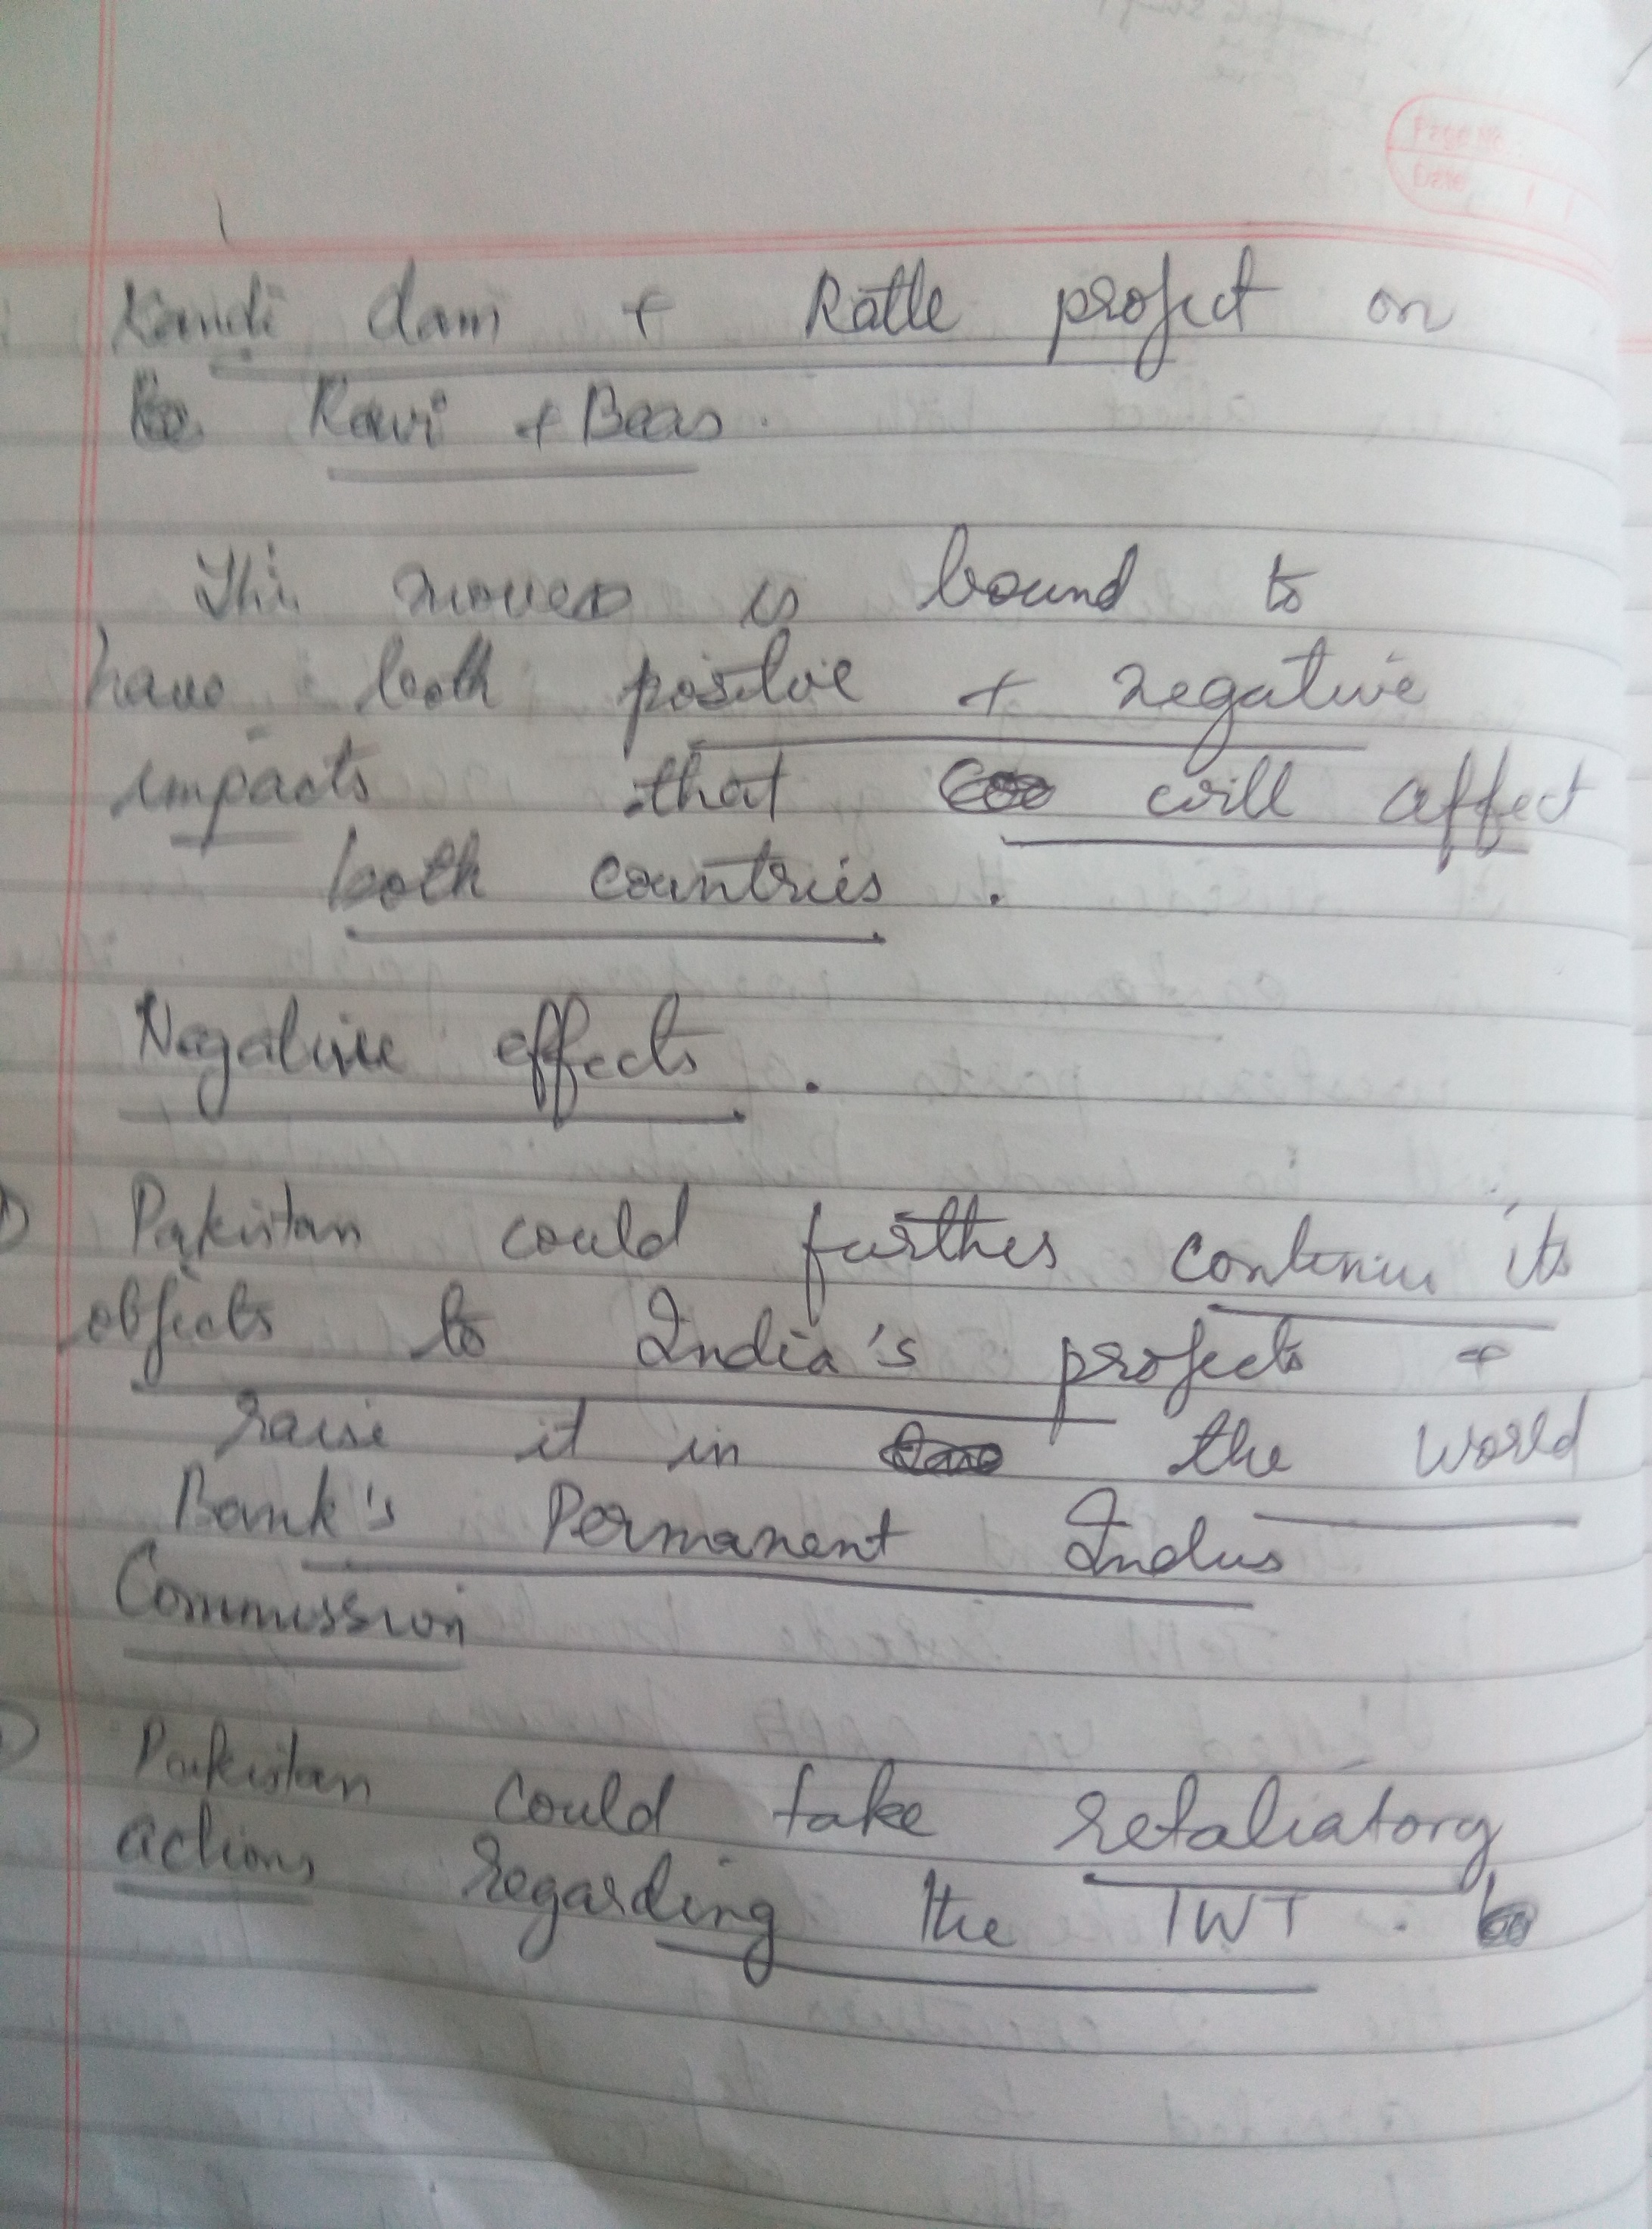 Page No.
Date
Kandi dam + Ratle project on
Ravi + Beas.
This moves is bound to
have both positive + negative
impacts that will affect
both countries.
Negative effects.
Pakistan could further continue its
objects to India's projects +
raise it in the World
Bank's Permanent Indus
Commission
Pakistan could take retaliatory
actions regarding the IWT.